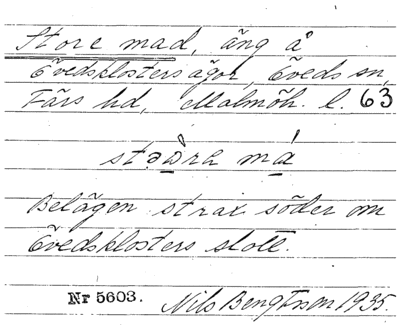 Store mad, äng å
Övedsklosters ägor, Öveds sn,
Färs hd, Malmöh. l. 63
Belägen strax söder om
Övedsklosters slott.
Nr 5603. Nils Bengtsson 1935.